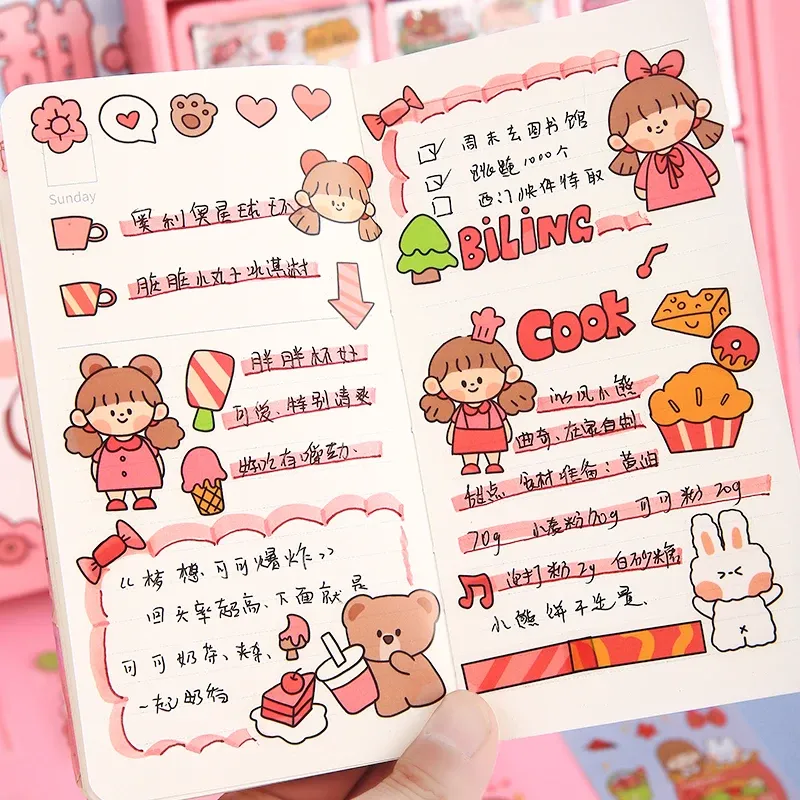 甜
Sunday
奥利奥星球杯
脏脏小丸子冰淇淋
胖胖杯好
可爱、特别清爽
特吃有嚼劲、
“梦想可可爆炸”
回头率超高、下面就是
可可奶茶、
一起奶
周末去图书馆
跳跑1000个
西门快件待取
BiLiNG
COOK
ins风小熊
曲奇、在家自制
甜点 食材准备：黄油
70g 小麦粉90g 可可粉20g
泡打粉2g 白砂糖
小熊饼干生置、